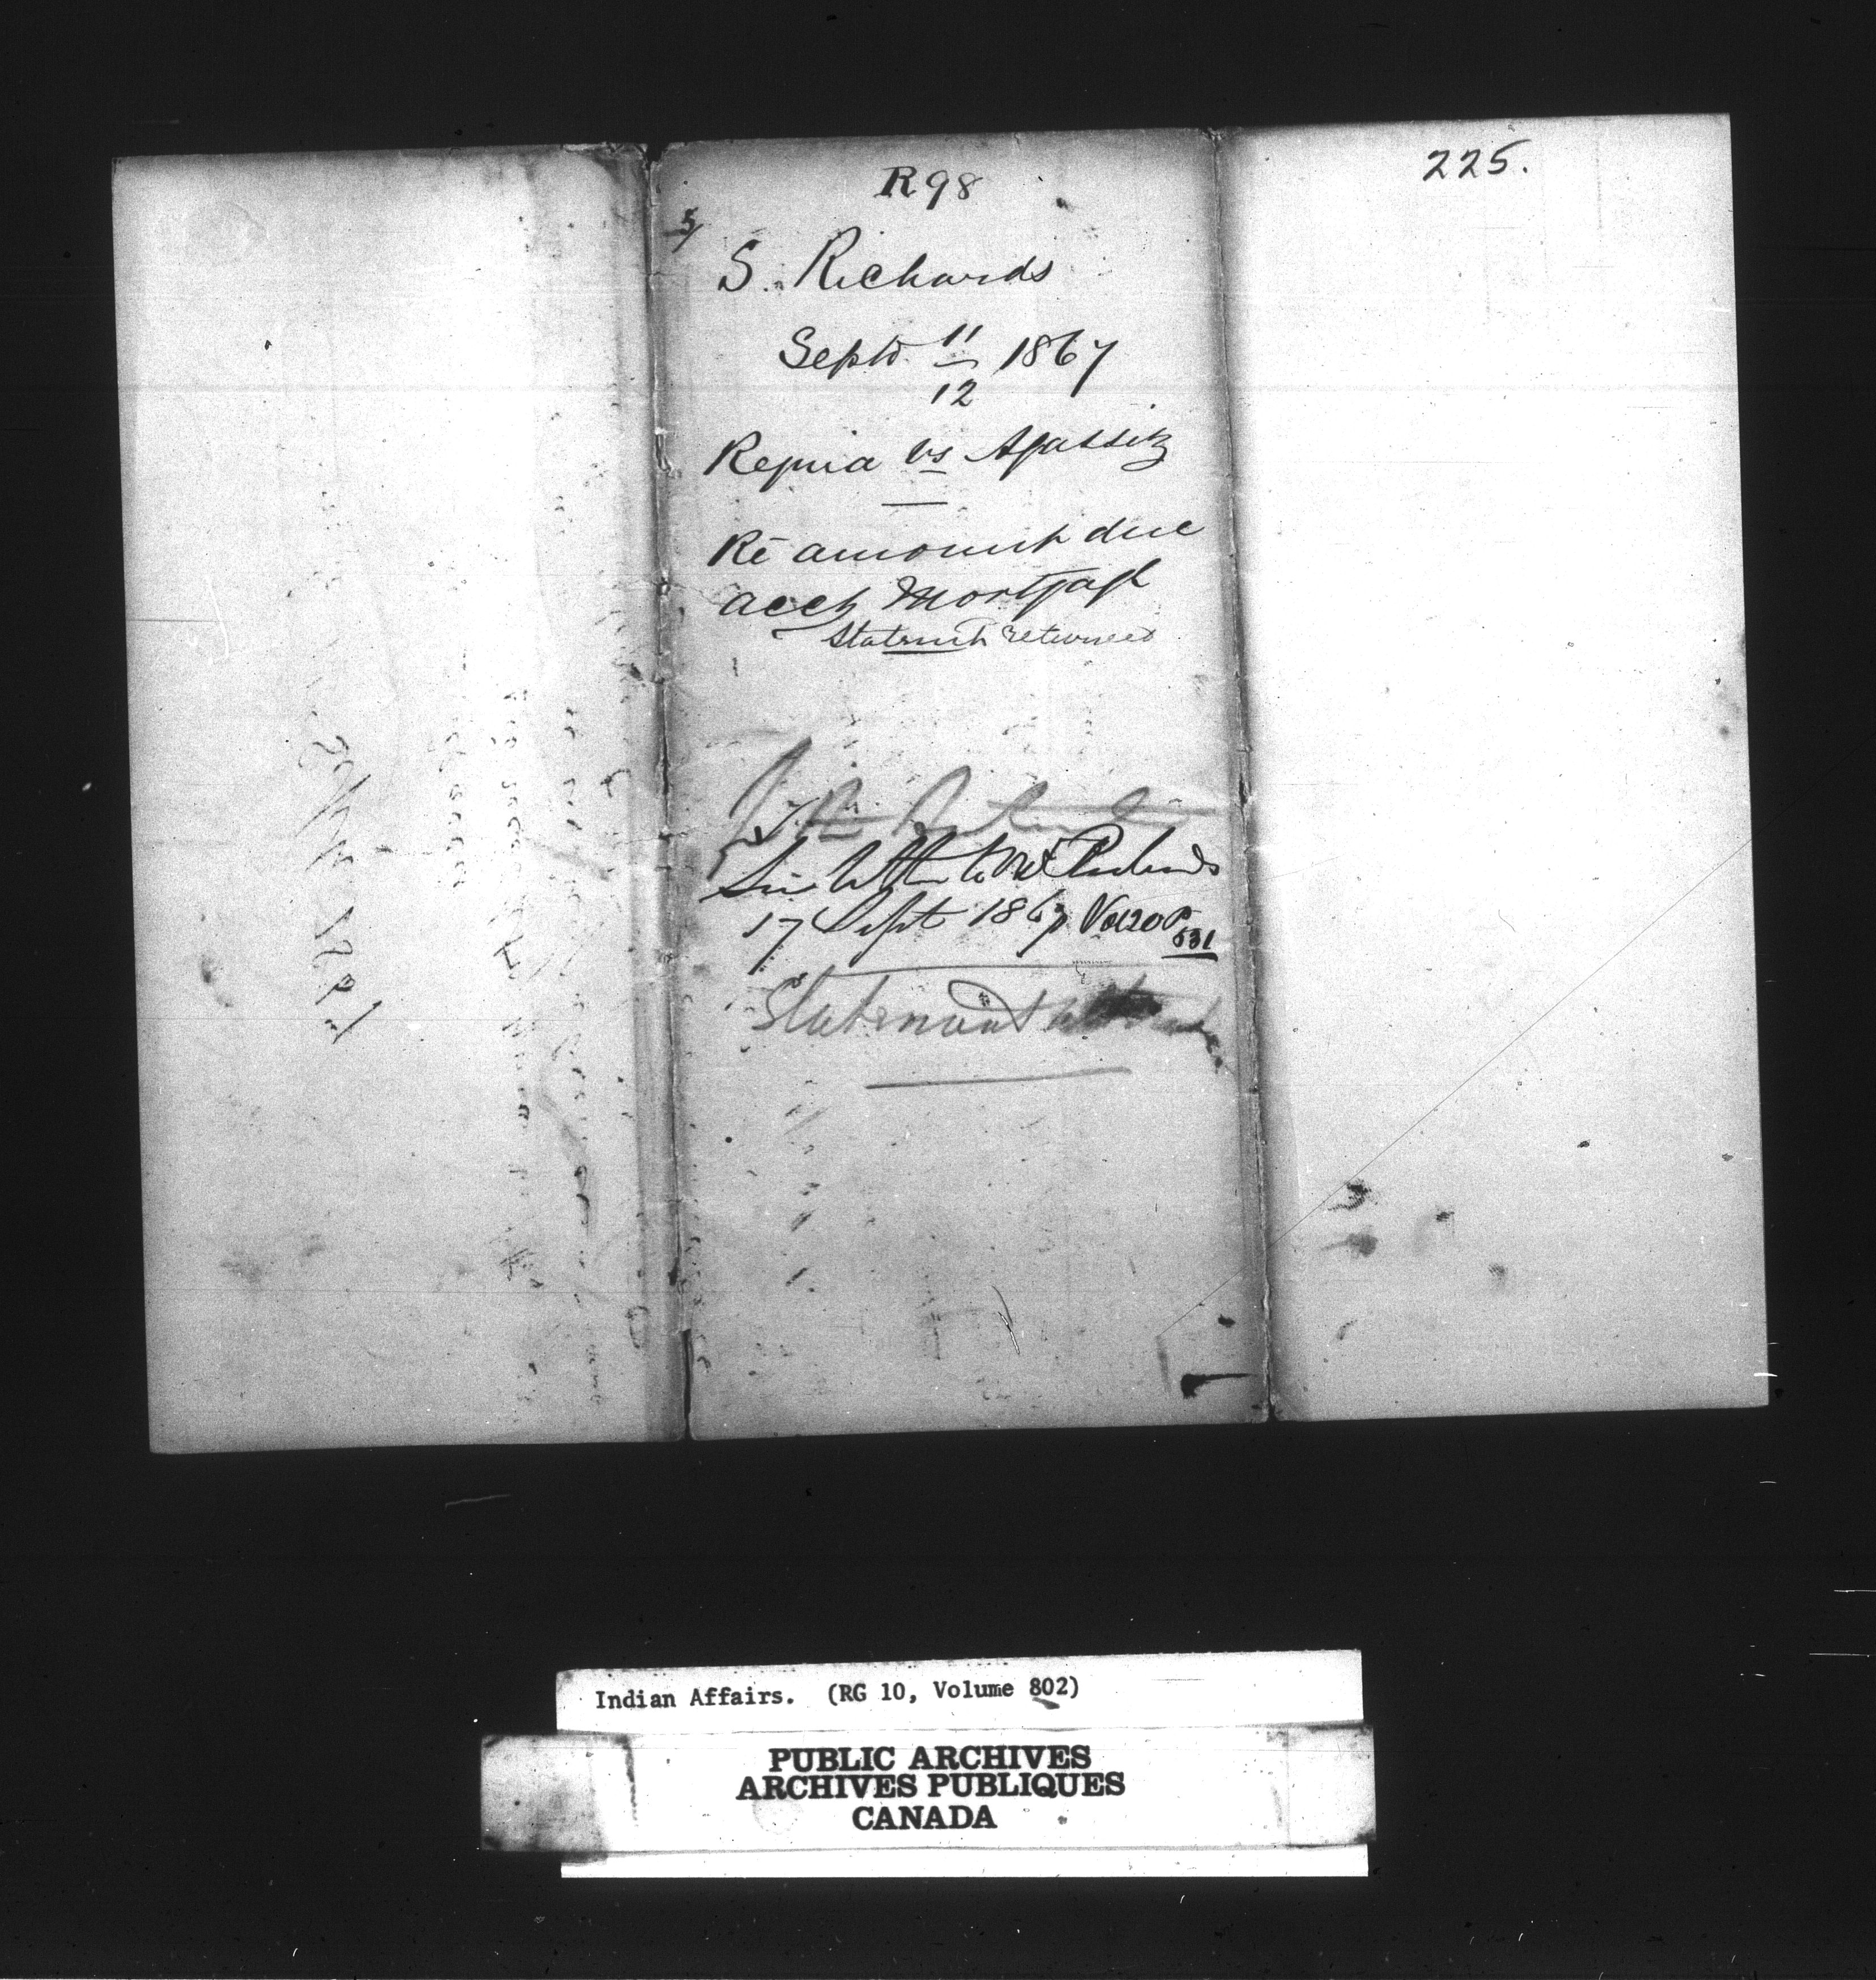 225.
R98
5/
S. Richards
Septr. 11/12 1867
Regina vs Agassiz
Re amount due
acct Mortgage
Statement returned
See letter to Mr Richards
17 Sept 1867 Vol 20 P 531
Statement
Indian Affairs. (RG 10, Volume 802)
PUBLIC ARCHIVES
ARCHIVES PUBLIQUES
CANADA